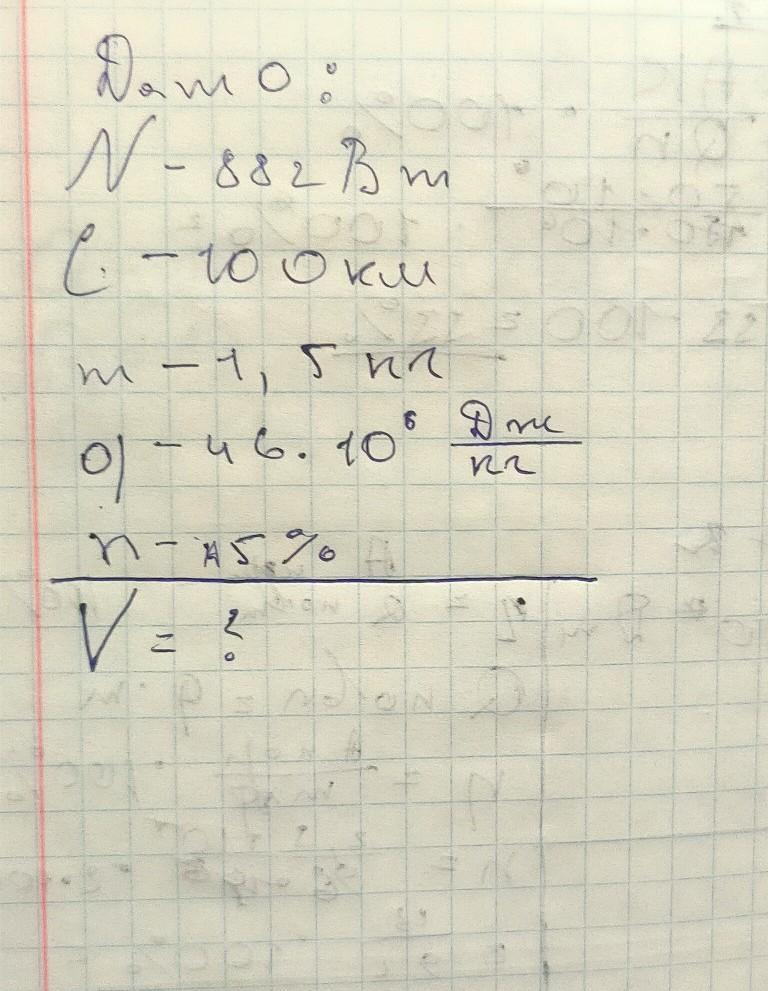 Дано:
N - 882 Вт
l. - 100 км
m - 1,5 кг
q - 46. 10⁶ Дж/кг
n - 15%
V = ?